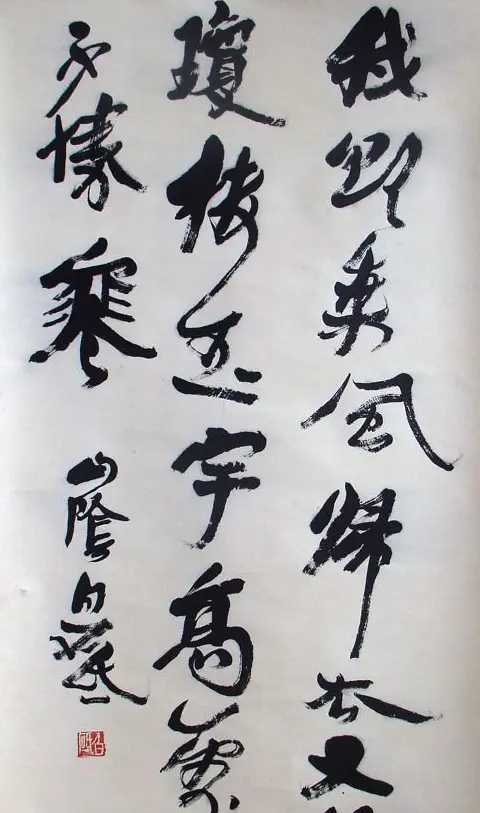 我欲乘風歸去又
瓊樓玉宇高處
不勝寒
山陰白砥